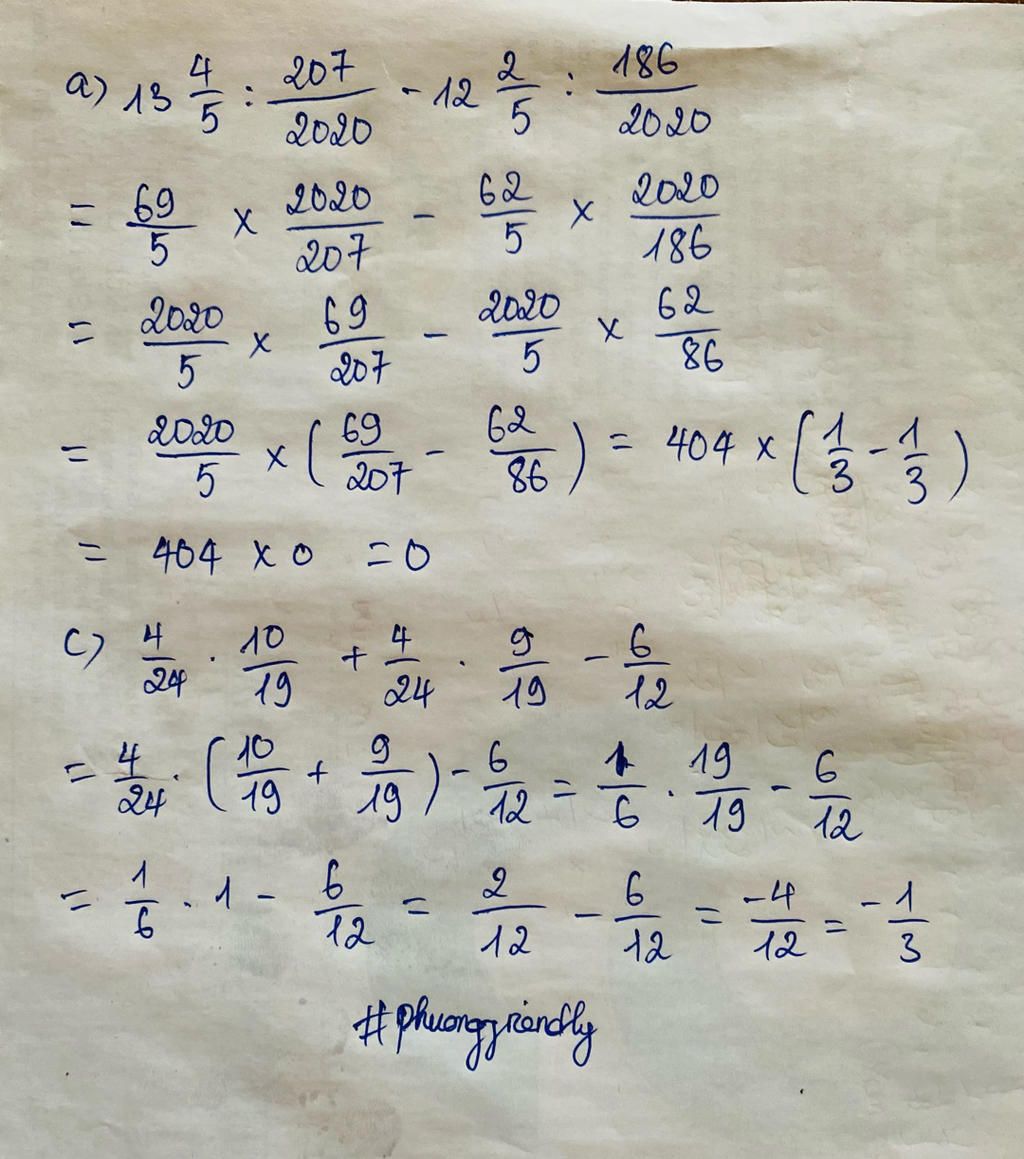 a) 13 4/5 : 207/2020 - 12 2/5 : 186/2020
= 69/5 x 2020/207 - 62/5 x 2020/186
= 2020/5 x 69/207 - 2020/5 x 62/86
= 2020/5 x (69/207 - 62/86) = 404 x (1/3 - 1/3)
= 404 x 0 = 0
c) 4/24 . 10/19 + 4/24 . 9/19 - 6/12
= 4/24 . (10/19 + 9/19) - 6/12 = 1/6 . 19/19 - 6/12
= 1/6 . 1 - 6/12 = 2/12 - 6/12 = -4/12 = -1/3
#phuongfriendly